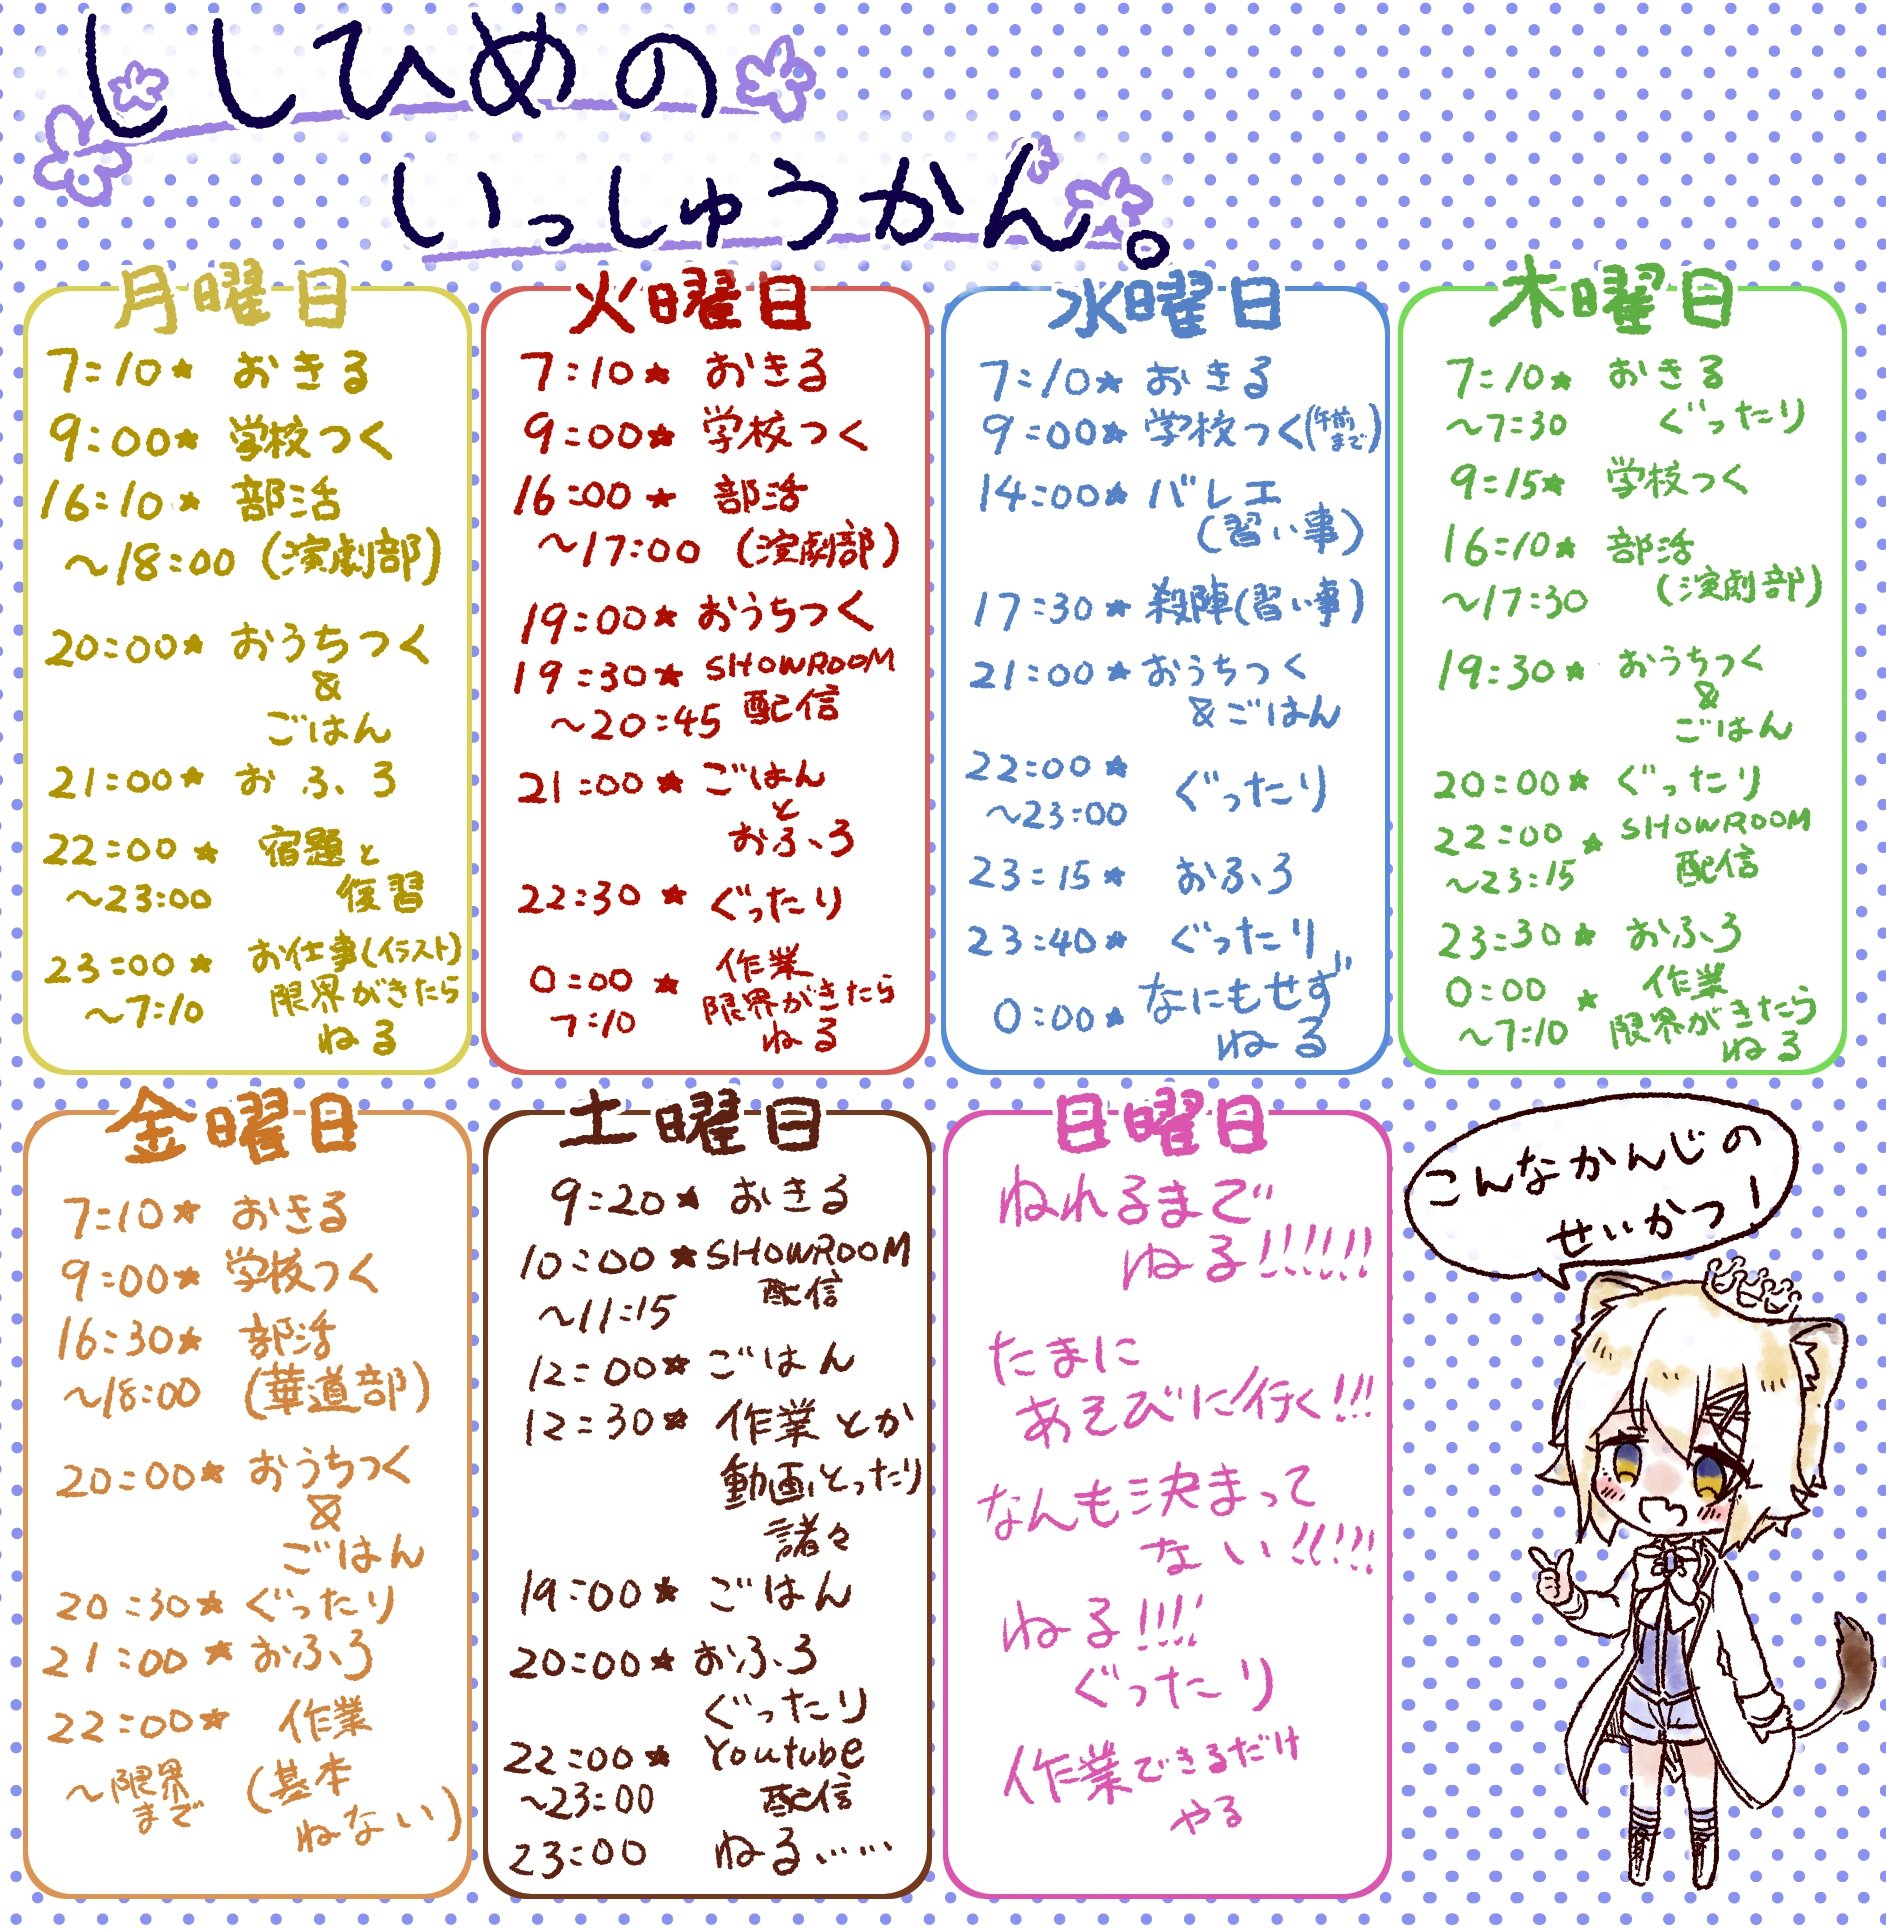 ししひめの
いっしゅうかん。
月曜日
7:10★ おきる
9:00★ 学校つく
16:10★ 部活
～18:00 (演劇部)
20:00★ おうちつく
&
ごはん
21:00★ おふろ
22:00★ 宿題と
～23:00 復習
23:00★ お仕事(イラスト)
～7:10 限界がきたら
ねる
火曜日
7:10★ おきる
9:00★ 学校つく
16:00★ 部活
～17:00 (演劇部)
19:00★ おうちつく
19:30★ SHOWROOM
～20:45 配信
21:00★ ごはん
と
おふろ
22:30★ ぐったり
0:00★ 作業
7:10 限界がきたら
ねる
水曜日
7:10★ おきる
9:00★ 学校つく(午前まで)
14:00★ バレエ
(習い事)
17:30★ 殺陣(習い事)
21:00★ おうちつく
&ごはん
22:00★
～23:00 ぐったり
23:15★ おふろ
23:40★ ぐったり
0:00★ なにもせず
ねる
木曜日
7:10★ おきる
～7:30 ぐったり
9:15★ 学校つく
16:10★ 部活
～17:30 (演劇部)
19:30★ おうちつく
&
ごはん
20:00★ ぐったり
22:00★ SHOWROOM
～23:15 配信
23:30★ おふろ
0:00★ 作業
～7:10 限界がきたら
ねる
金曜日
7:10★ おきる
9:00★ 学校つく
16:30★ 部活
～18:00 (華道部)
20:00★ おうちつく
&
ごはん
20:30★ ぐったり
21:00★ おふろ
22:00★ 作業
～限界まで (基本
ねない)
土曜日
9:20★ おきる
10:00★ SHOWROOM
～11:15 配信
12:00★ ごはん
12:30★ 作業とか
動画とったり
諸々
19:00★ ごはん
20:00★ おふろ
ぐったり
22:00★ Youtube
～23:00 配信
23:00 ねる……
日曜日
ねれるまで
ねる!!!!!!
たまに
あそびに行く!!!
なんも決まって
ない!!!!!
ねる!!!!
ぐったり
作業できるだけ
やる
こんなかんじの
せいかつ!